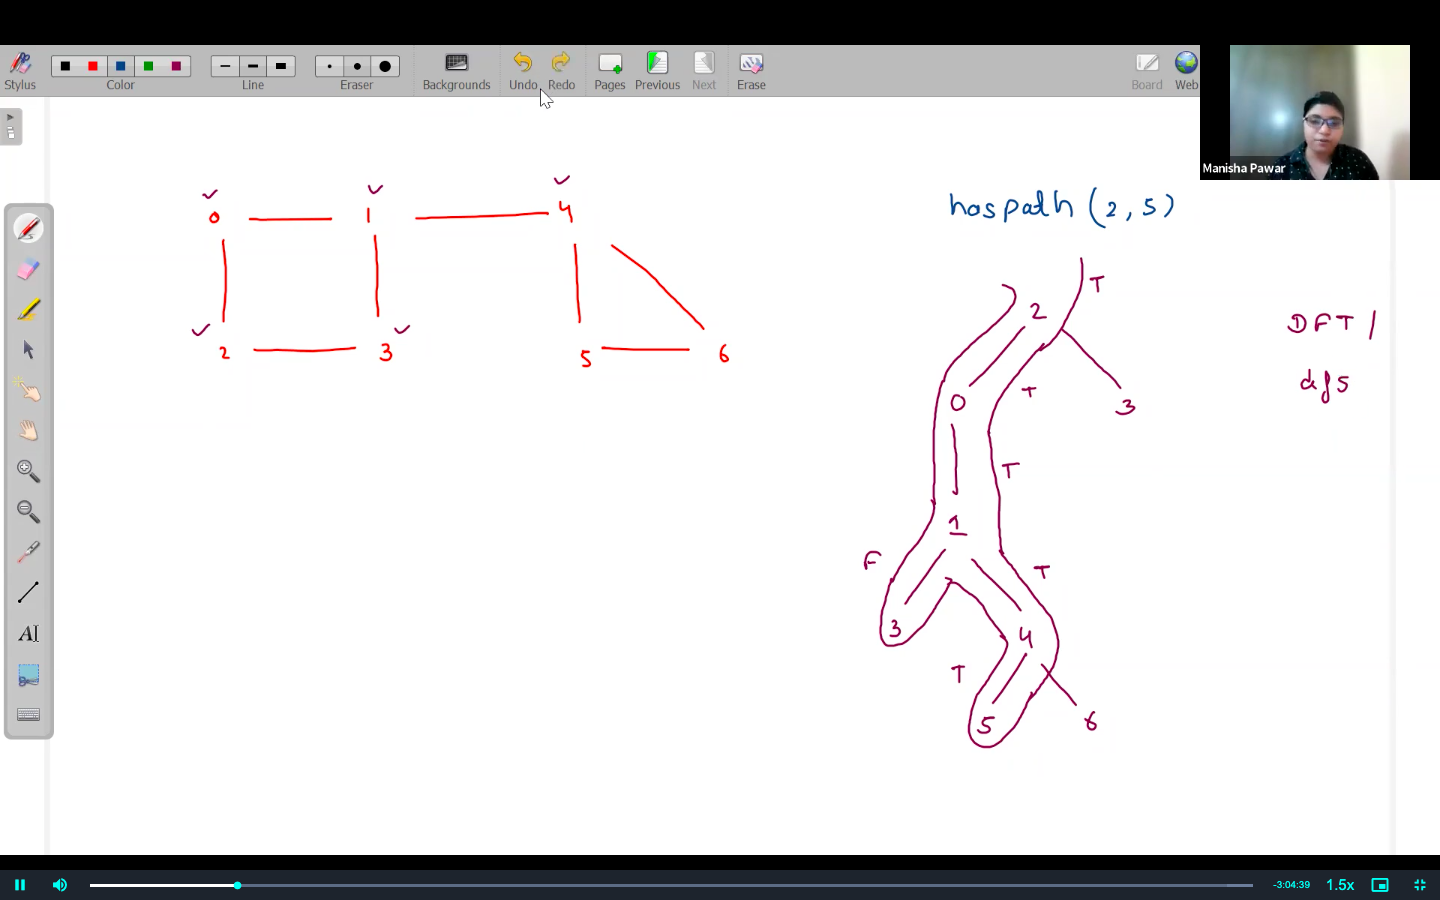 Stylus Color Line Eraser Backgrounds Undo Redo Pages Previous Next Erase Board Web
Manisha Pawar
0 1 4
2 3 5 6
haspath (2, 5)
T
2
DFT /
dfs
0 T 3
T
1
F T
3 4
T
5 6
AI
-3:04:39 1.5x